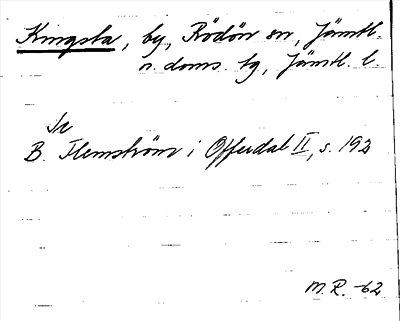 Kingsta, by, Rödön sn, Jämtl.
n. doms. tg, Jämtl. l.
Se
B. Flemström i Offerdal II, s. 192
M.R. -62